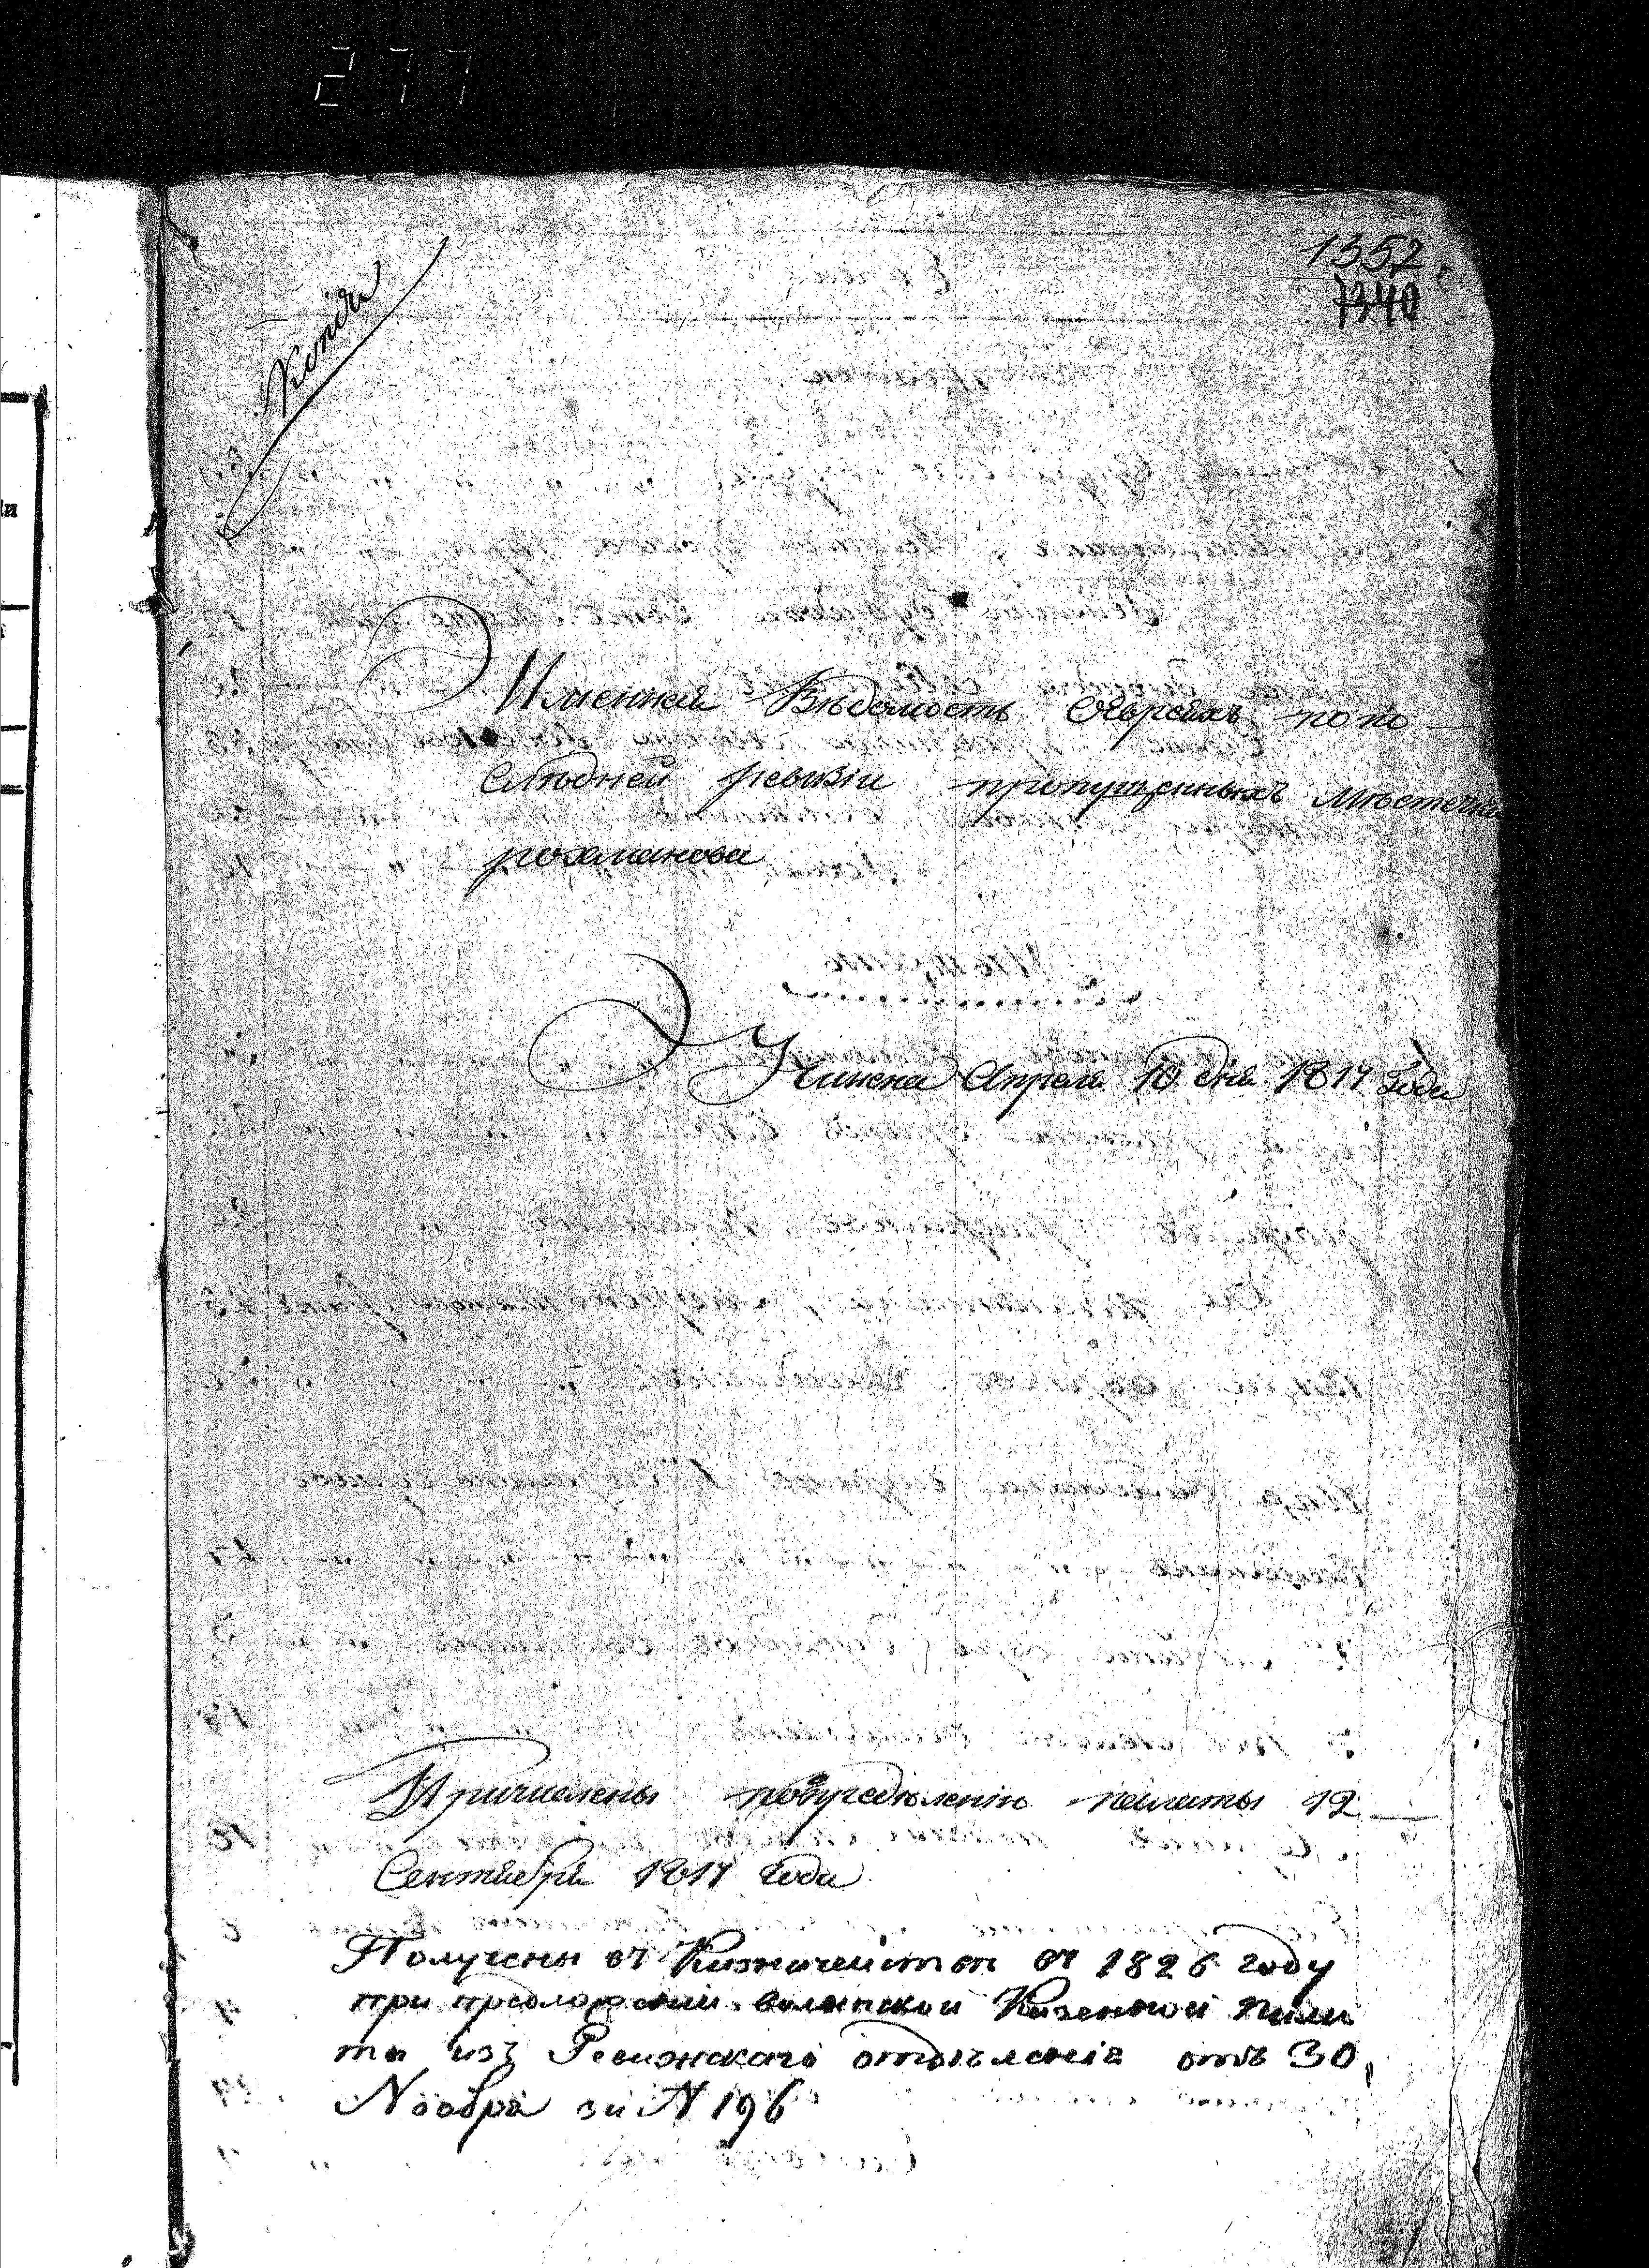 277
1352
1340
Копія
Именная Вѣдомость Євреяхъ по по
слѣдней ревизіи пропущенныхъ мѣстечка
рохманова
Учинена Апреля 10 дня 1817 года
Причислены поопределенію палаты 12
Сентября 1817 года
Получены въ Казначействѣ въ 1826 году
при предложеніи волынской Казенной пала
ты изъ Ревижскаго отдѣленія отъ 30
Ноября за N 196